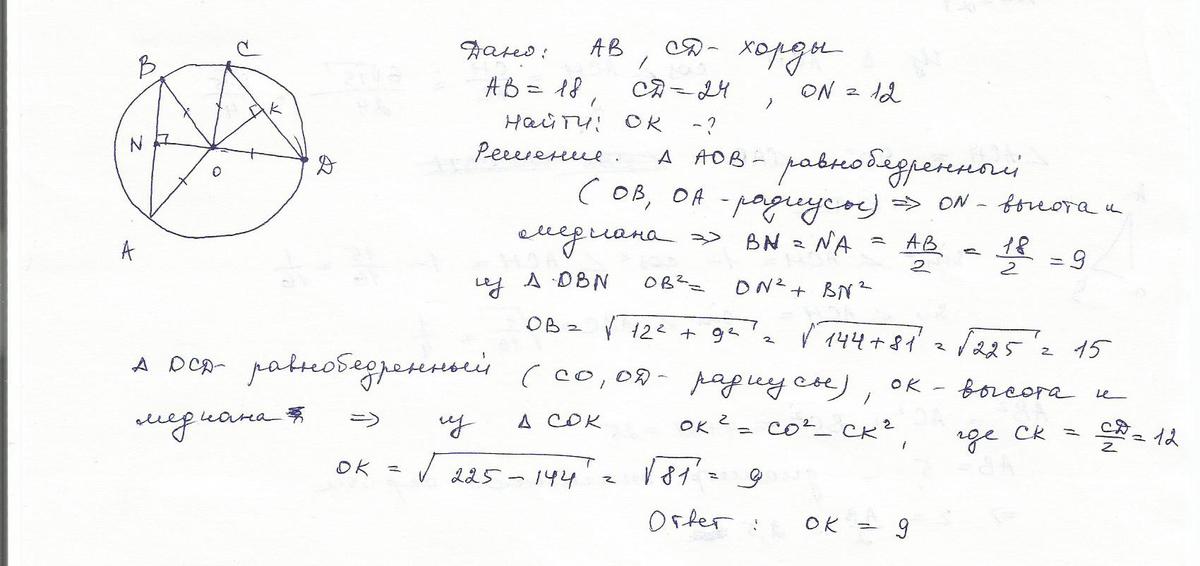 Дано: AB, CD - хорды
AB = 18, CD = 24, ON = 12
Найти: OK - ?
Решение. Δ AOB - равнобедренный
(OB, OA - радиусы) ⇒ ON - высота и
медиана ⇒ BN = NA = AB/2 = 18/2 = 9
из Δ OBN OB² = ON² + BN²
OB = √(12² + 9²) = √(144+81) = √225 = 15
Δ OCD - равнобедренный (CO, OD - радиусы), OK - высота и
медиана ⇒ из Δ COK OK² = CO² - CK², где CK = CD/2 = 12
OK = √(225 - 144) = √81 = 9
Ответ: OK = 9
B
C
N
K
O
D
A